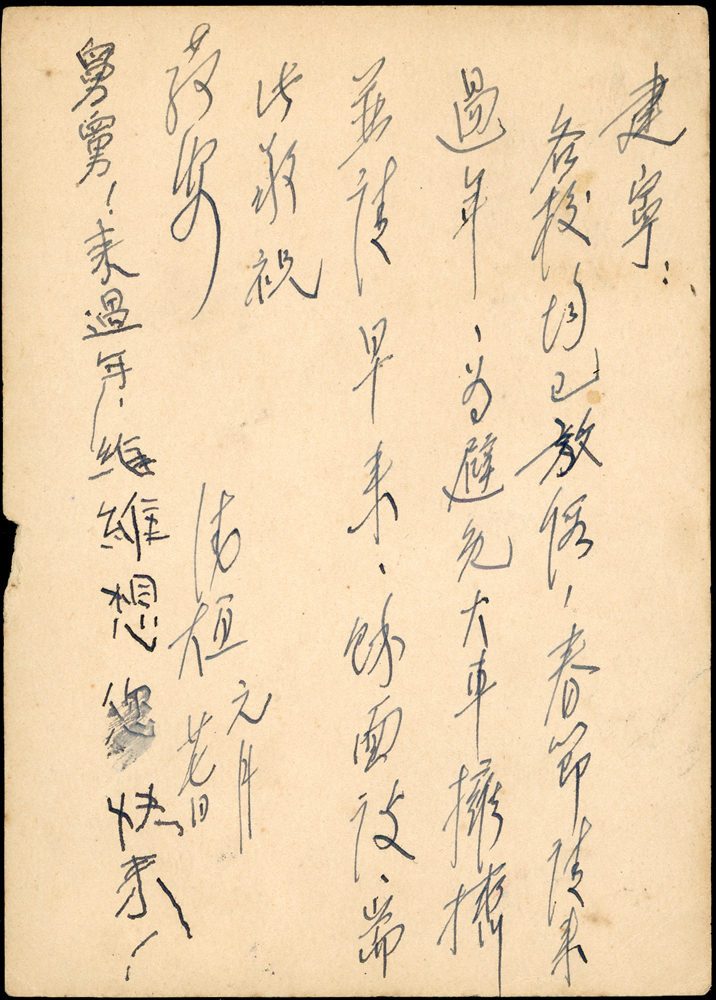 建寧：
各校均已放假，春節請來
過年，為避免火車擁擠
並請早來，餘面談，耑
此敬祝
教安
元月
廿七日
舅舅！来過年，維維想您快来！